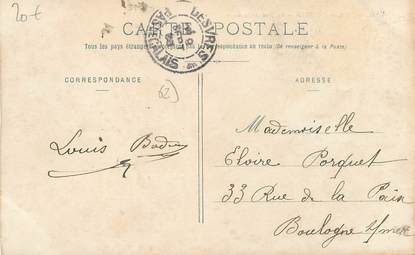 20€
CARTE POSTALE
Tous les pays étrangers la Correspondance au recto (Se renseigner à la Poste)
DESVRES
PAS-DE-CALAIS
CORRESPONDANCE
ADRESSE
62
Louis
Mademoiselle
Eloire Porquet
33 Rue de la Paix
Boulogne s/mer